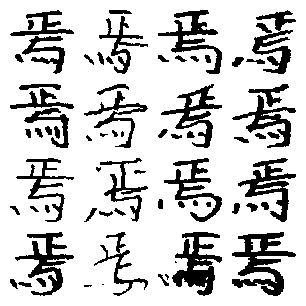 焉焉焉焉
焉焉焉焉
焉焉焉焉
焉焉焉焉